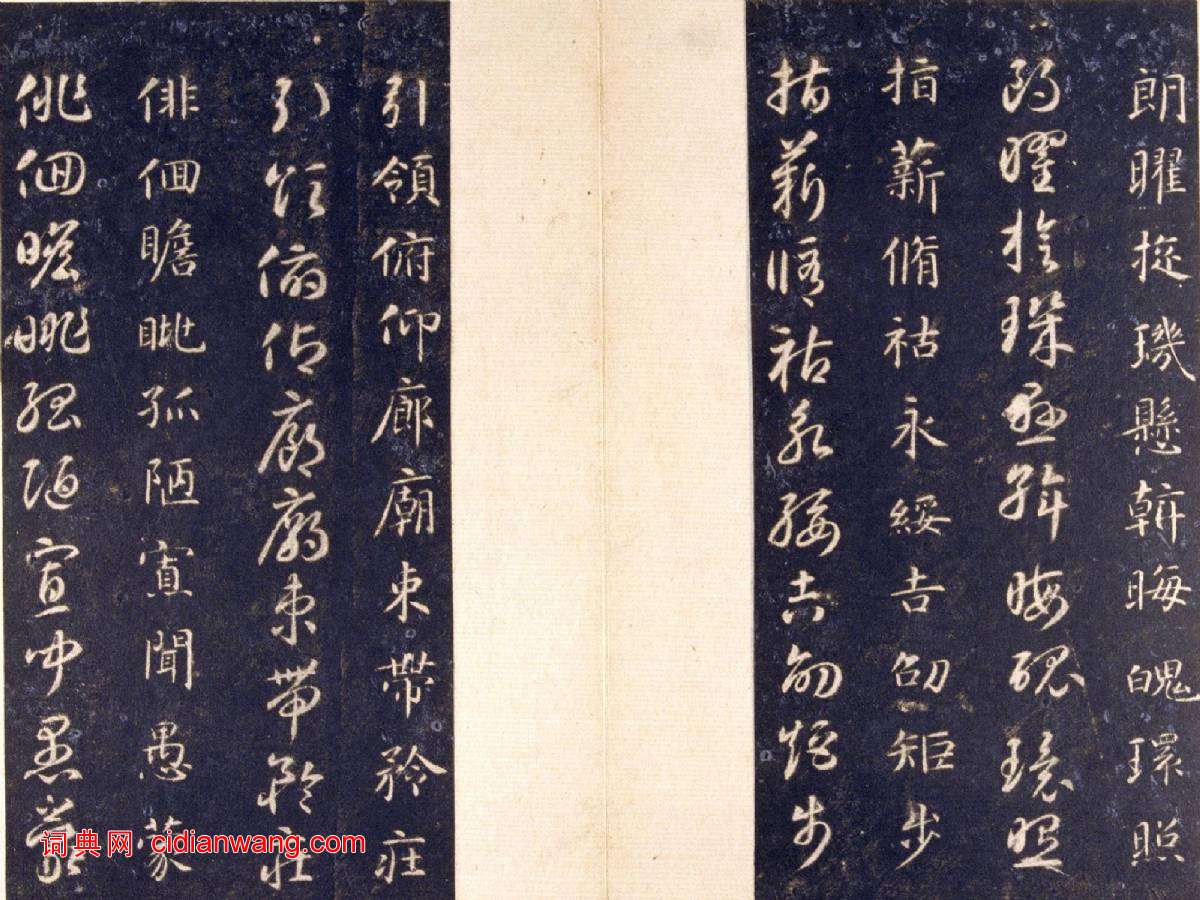 朗曜旋璣懸斡晦魄環照
朗曜旋璣懸斡晦魄環照
指薪脩祜永綏吉劭矩步
指薪脩祜永綏吉劭矩步
引領俯仰廊廟束帶矜莊
引領俯仰廊廟束帶矜莊
俳佪瞻眺孤陋寡聞愚蒙
俳佪瞻眺孤陋寡聞愚蒙
词典网: cidianwang.com